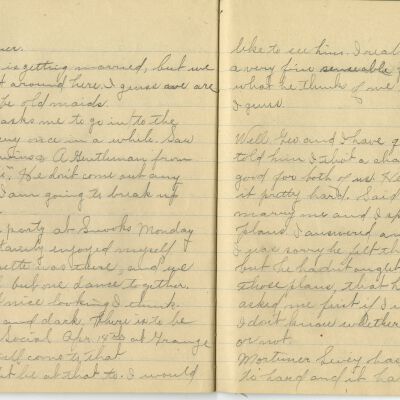 is getting married, but we
around here. I guess we are
old maids.
asks me to go in to the
once in a while. Saw
A Gentleman from
He don't come out any
I am going to break up
party at Snooks Monday
enjoyed myself
was there, and ye
but one dance together.
nice looking I think.
and dark. There is to be
social Apr. 18 at Grange
come to that
be at that to. I would
like to see him. I real
a very fine senseable
what he thinks of me
I guess.
Well Geo and I have q
told him I thot a cha
good for both of us. He
it pretty hard. Said
marry me and I sp
plans. I answered an
I was sorry he felt th
but he hadn't ought
those plans, that h
asked me first if I w
I don't know whether
or not.
Mortimer Levey has
hard and it ha